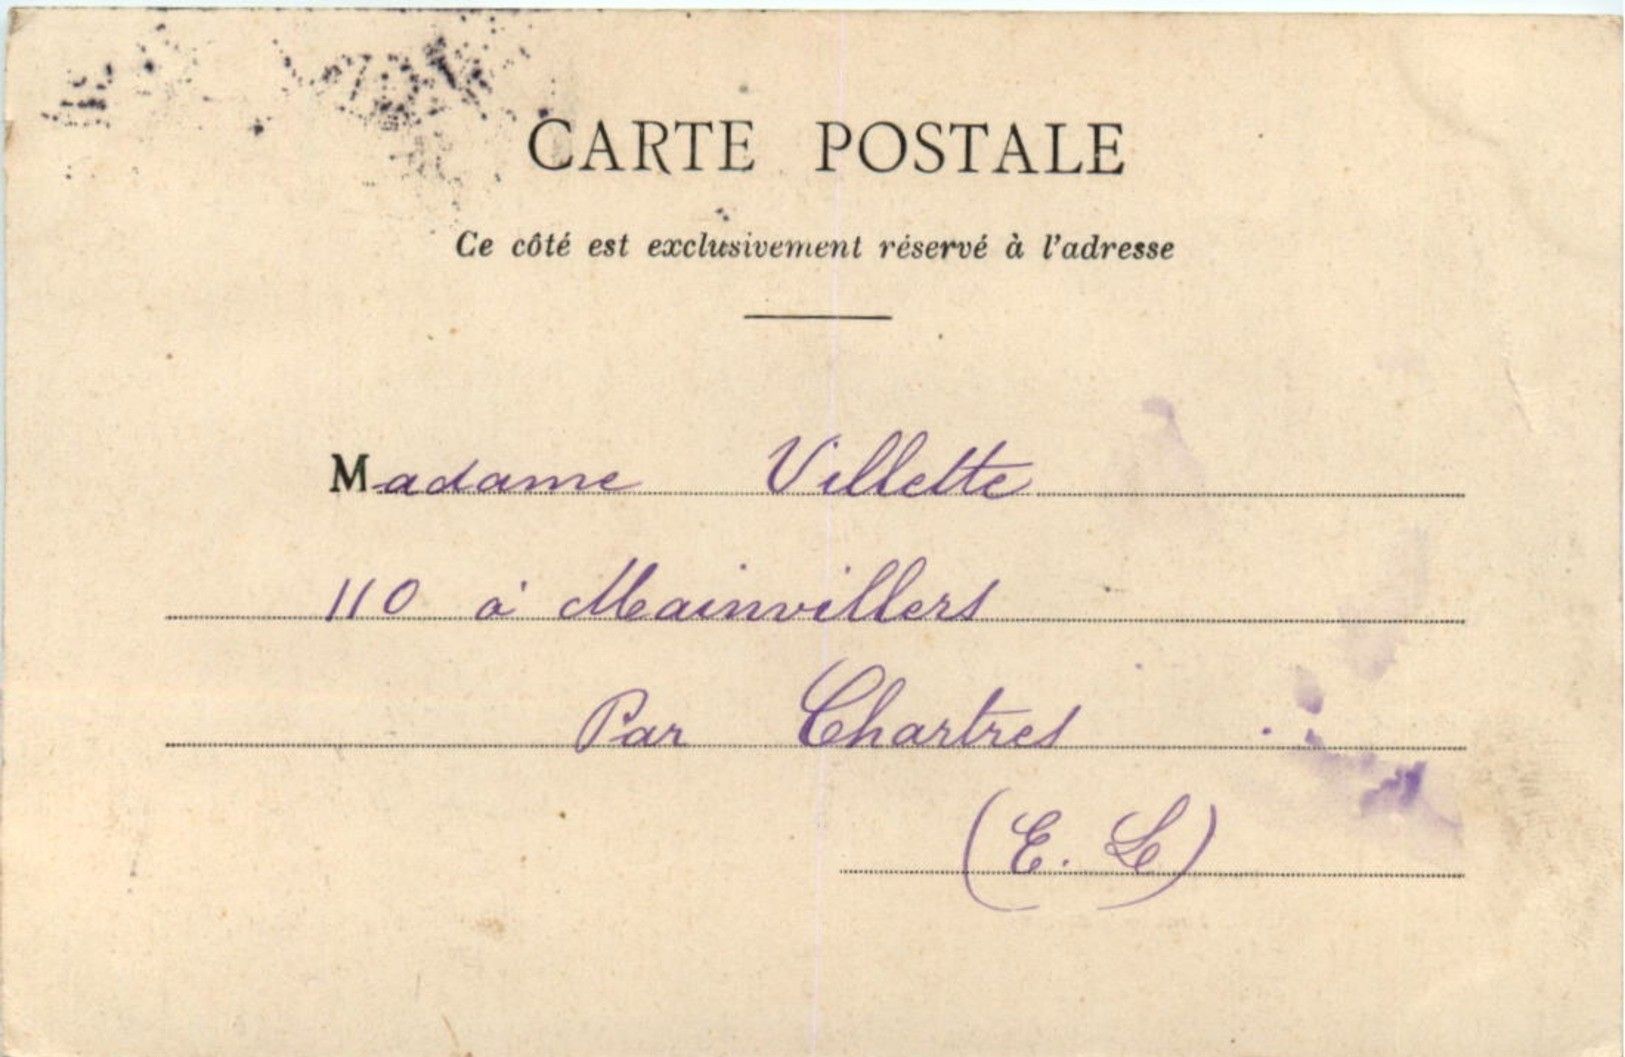 CARTE POSTALE
Ce côté est exclusivement réservé à l'adresse
Madame Villette
110 à Mainvillers
Par Chartres
(E. L)